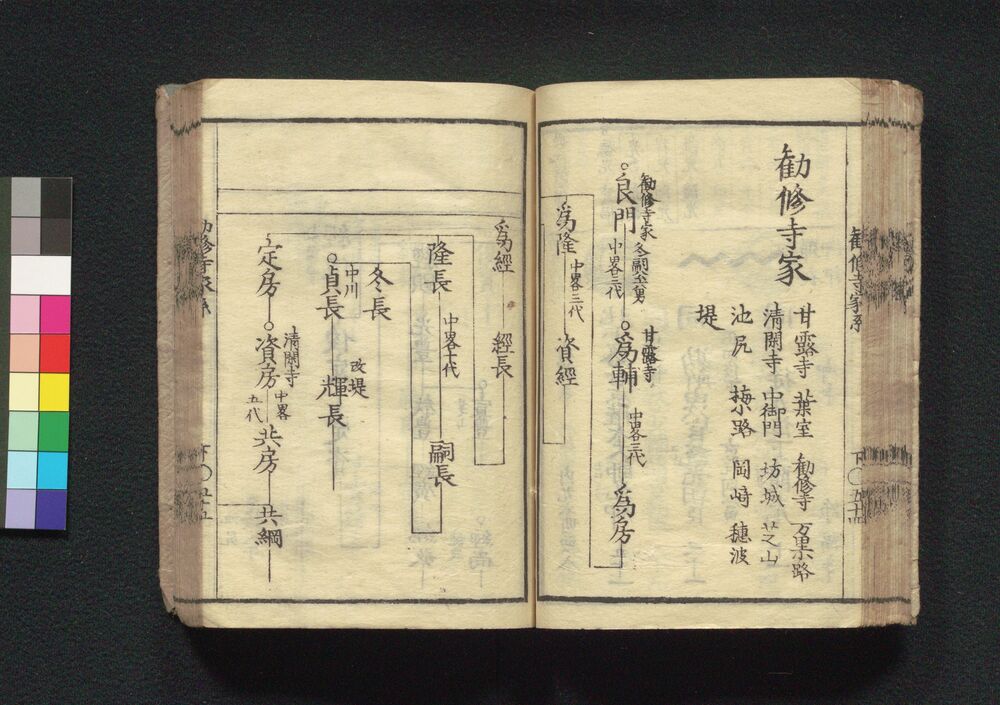 勧修寺家
甘露寺 葉室 勧修寺 万里小路
清閑寺 中御門 坊城 芝山
池尻 梅小路 岡崎 穂波
堤
勧修寺家 冬嗣六男
○良門 中畧三代
甘露寺
○為輔 中畧三代 為房
為隆 中畧三代 資経
為経 経長
隆長 中畧十代 嗣長
冬長
中川
○貞長 改堤 輝長
定房 清閑寺
○資房 中畧五代 共房 共綱
勧修寺家系
下○五十四
勧修寺家系
下○五十五